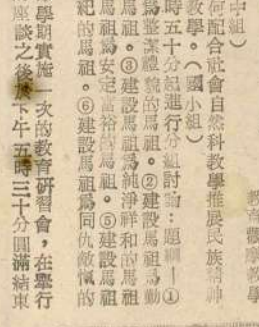 教育觀摩教學
中組)
何配合社會自然科教學推展民族精神
教學。(國小組)
時五十分起進行分組討論:題綱—①
爲整潔禮貌的馬祖。②建設馬祖爲勤
馬祖。③建設馬祖爲純淨祥和的馬祖
馬祖爲安定富裕的馬祖。⑤建設馬祖
紀的馬祖。⑥建設馬祖爲同仇敵愾的
學期實施一次的教育研習會,在舉行
座談之後於下午五時三十分圓滿結束